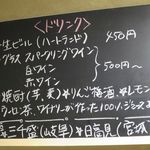 ＜ドリンク＞
生ビール(ハートランド) 450円
グラス スパークリングワイン
白ワイン 500円〜
赤ワイン
焼酎(芋、麦) *りんご 梅酒、*レモン
ウーロン茶、ワイナリーが作った100%ジュース
三千盛(岐阜) *日高見(宮城)